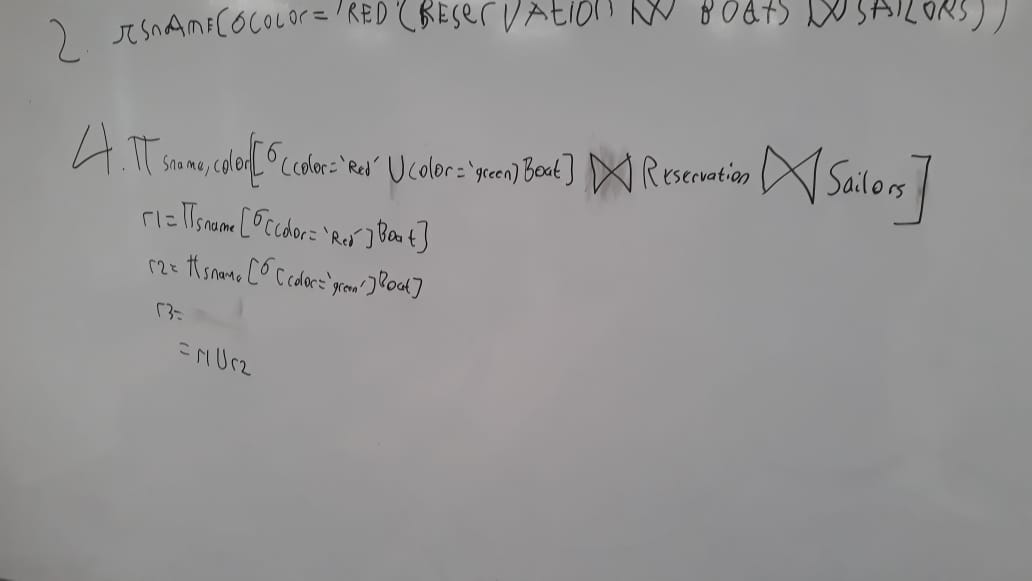 2. πSNAME(σCOLOR='RED'(RESERVATION ⋈ BOATS ⋈ SAILORS))
4. π sname, color[σ(color='Red' ∪ color='green) Boat] ⋈ Reservation ⋈ Sailors]
r1= πsname [σ(color='Red'] Boat]
r2= πsname [σ(color='green'] Boat]
r3=
= r1 ∪ r2